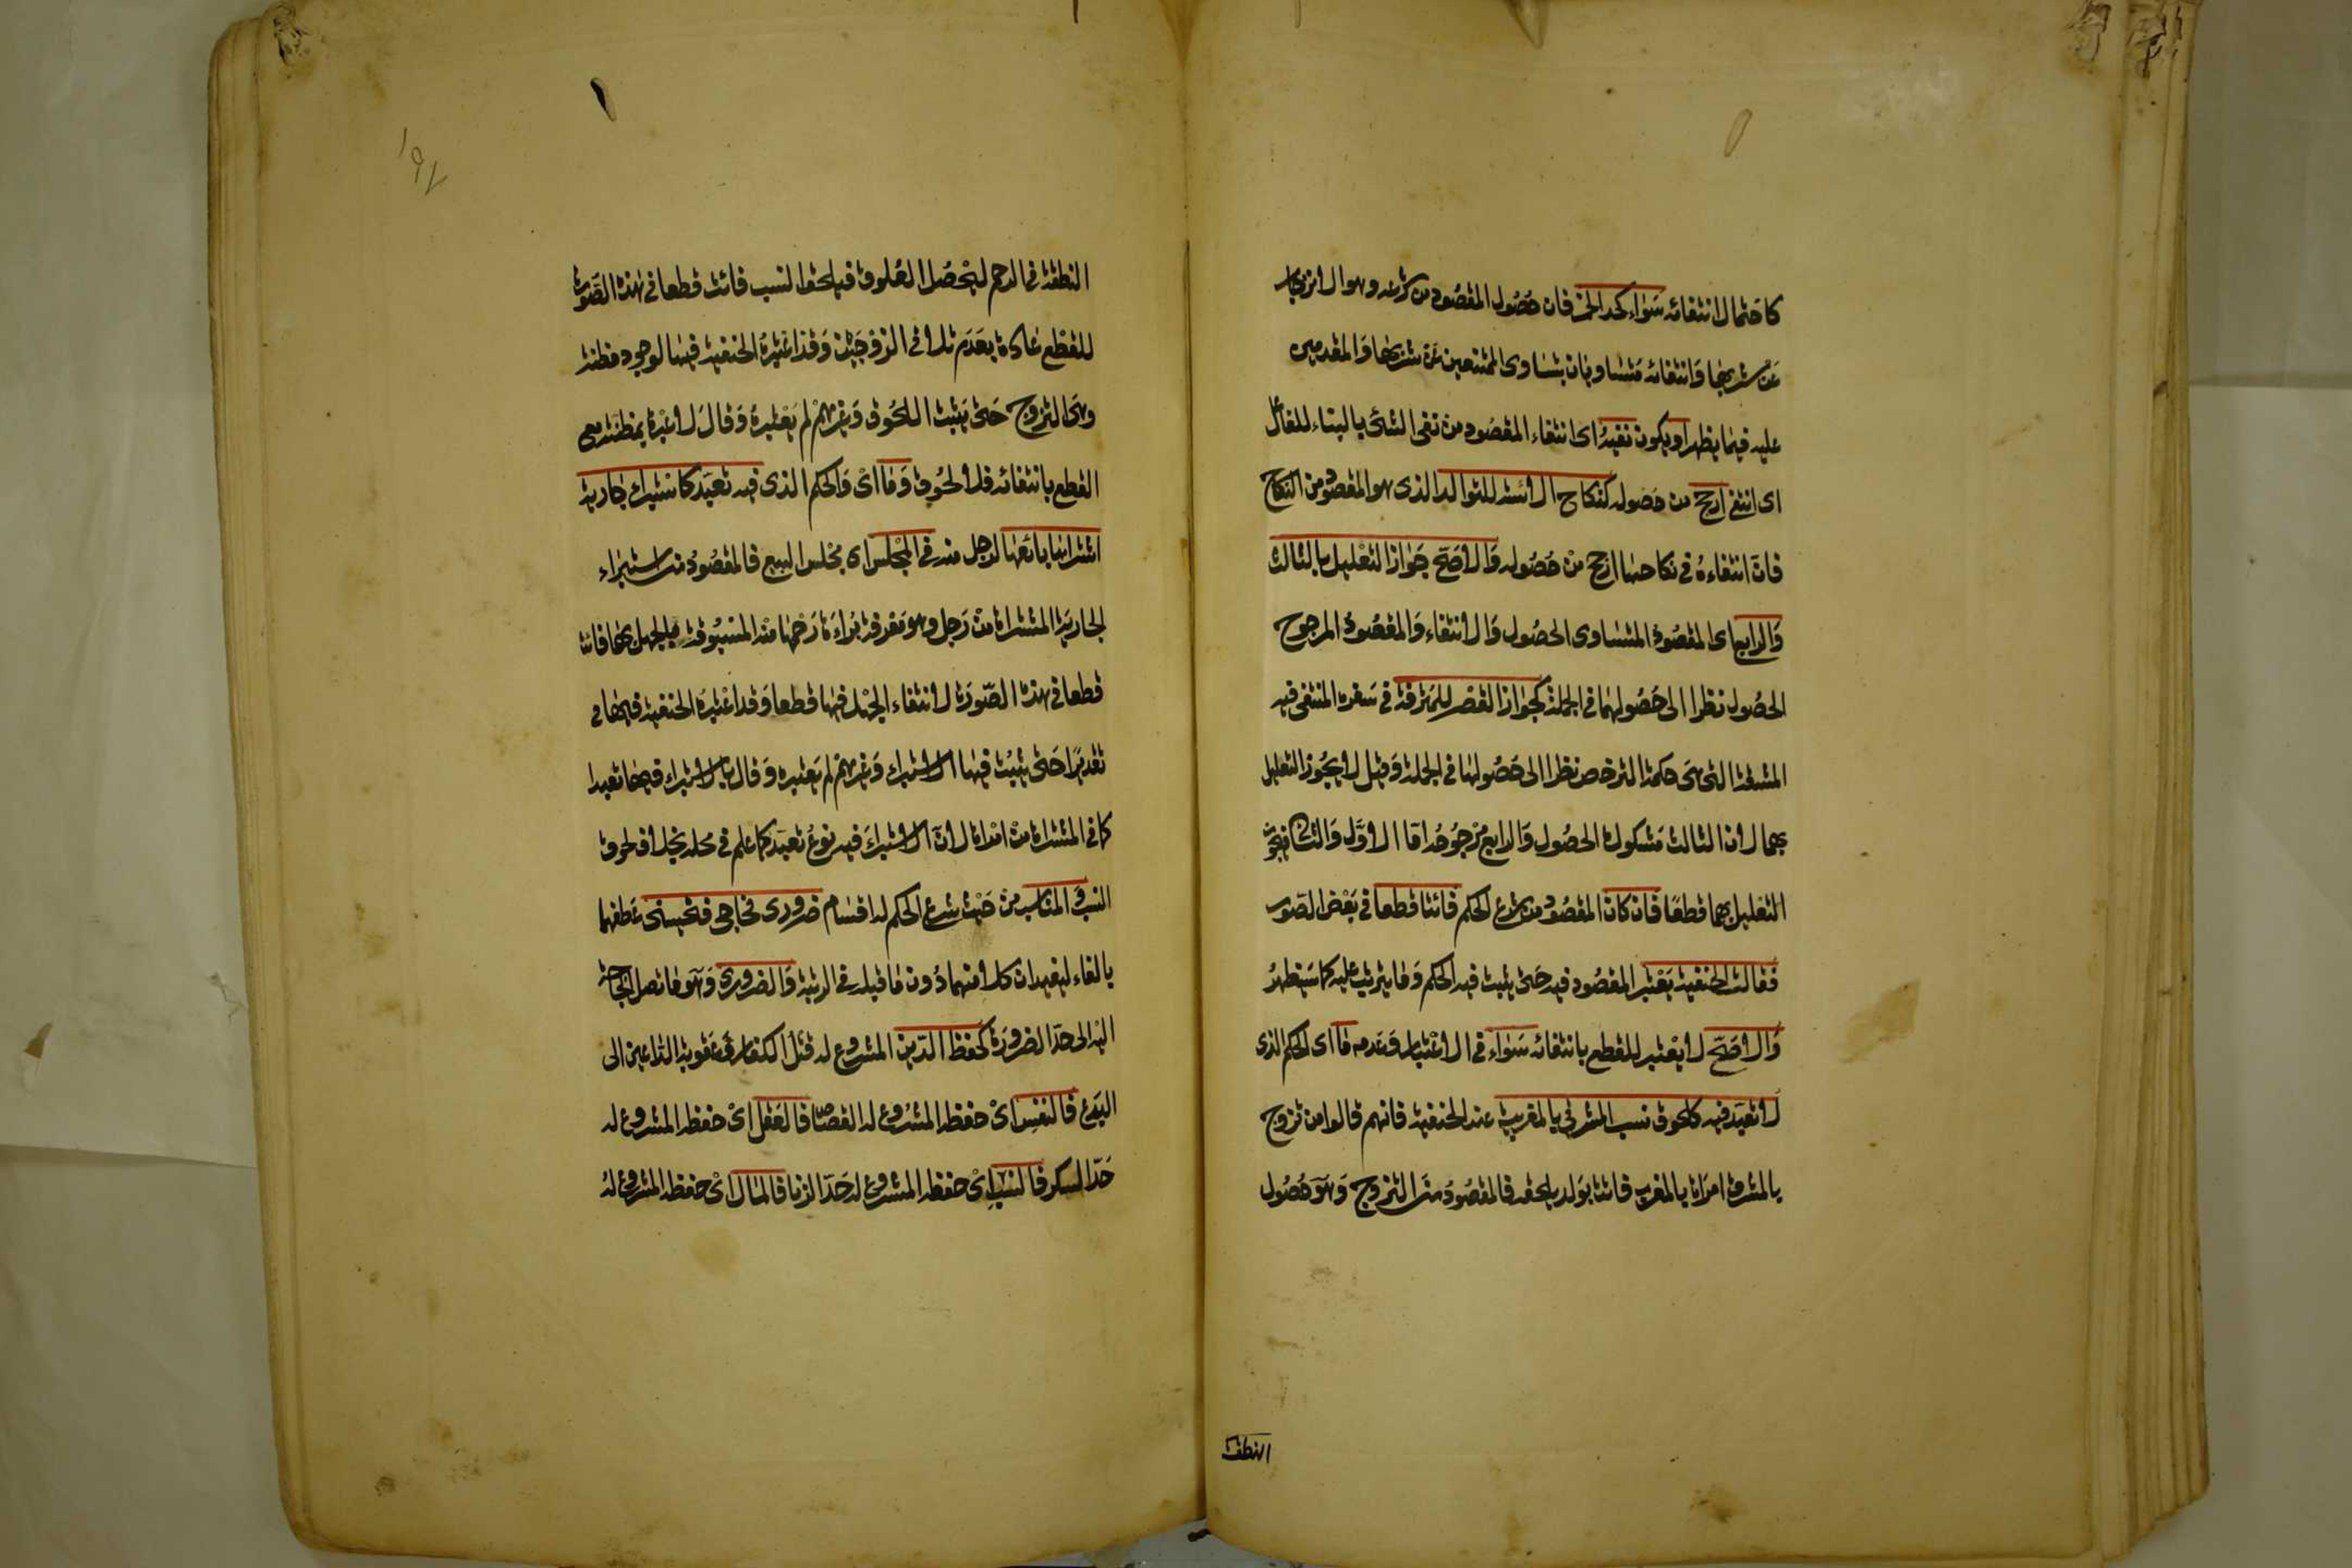 كاحتمال انتفائه سواء كحد الخمر فان حصول المقصود من شرعه وهو الانزجار
عن شربها وانتفائه متساويان بتساوى الممتنعين عن شربها والمقدمين
عليه فيما يظهر او يكون نفيه اى انتفاء المقصود من نفى الشئ بالبناء للفاعل
اى انتفى ارجح من حصوله كنكاح الائسه للتوالد الذى هو المقصود من النكاح
فان انتفاءه فى نكاحها ارجح من حصوله والاصح جواز التعليل بالثالث
والرابع اى المقصود المتساوى الحصول والانتفاء والمقصود المرجوح
الحصول نظرا الى حصولهما فى الجملة كجواز القصر للمترفه فى سفره المنتفى فيه
المشقة التى هى حكمة الترخص نظرا الى حصولها فى الجملة وقيل لا يجوز التعليل
بهما لان الثالث مشكوك الحصول والرابع مرجوحه اما الاول والثانى فيجوز
التعليل بهما قطعا فان كان المقصود من شرع الحكم فائتا قطعا فى بعض الصور
فقالت الحنفية يعتبر المقصود فيه حتى يثبت فيه الحكم وما يترتب عليه كما سيظهر
والاصح لا يعتبر للقطع بانتفائه سواء فى الاعتبار وعدمه ما اى الحكم الذى
لا تعبد فيه كلحوق نسب المشرقى بالمغربية عند الحنفية فانهم قالوا من تزوج
بالمشرق امراة بالمغرب فاتت بولد يلحقه فالمقصود من التزوج وهو حصول
النطفة
١٩٧
النطفة فى الرحم ليحصل العلوق فيلحق النسب فائت قطعا فى هذه الصورة
للقطع عادة بعدم تلاقى الزوجين وقد اعتبره الحنفية فيها لوجود مظنته
وهى التزوج حتى يثبت اللحوق وغيرهم لم يعتبره وقال لا عبرة بمظنته مع
القطع بانتفائه فلا لحوق وما اى والحكم الذى فيه تعبد كاستبراء جارية
اشتراها بائعها لرجل منه فى المجلس اى مجلس البيع فالمقصود من استبراء
الجارية المشتراة من رجل وهو معرفة براءة رحمها منه المسبوقة بالجهل بها فائت
قطعا فى هذه الصورة لانتفاء الجهل فيها قطعا وقد اعتبره الحنفية فيها
تقديرا حتى يثبت فيها الاستبراء وغيرهم لم يعتبره وقال بالاستبراء فيها تعبدا
كما فى المشتراة من امراة لان الاستبراء فيه نوع تعبد كما علم فى محله بخلاف لحوق
النسب والمناسب من حيث شرع الحكم له اقسام ضرورى فحاجى فتحسينى عطفهما
بالفاء ليفيد ان كلا منهما دون ما قبله فى الرتبة والضرورى وهو ما تصل الحاجة
اليه الى حد الضرورة كحفظ الدين المشروع له قتل الكفار وعقوبة الداعين الى
البدع فالنفس اى حفظه المشروع له القصاص فالعقل اى حفظه المشروع له
حد السكر فالنسب اى حفظه المشروع له حد الزنا فالمال اى حفظه المشروع له